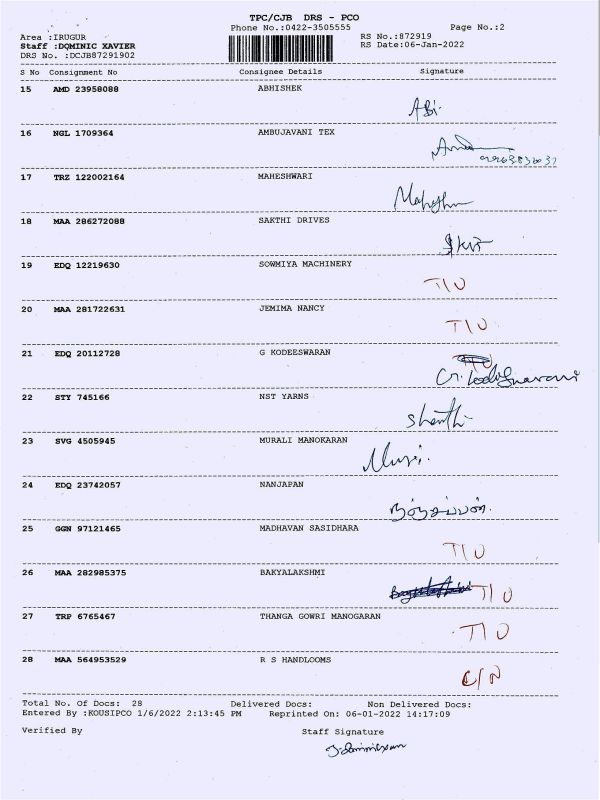 TPC/CJB DRS - PCO
Phone No.:0422-3505555 Page No.:2
Area :IRUGUR RS No.:872919
Staff :DOMINIC XAVIER RS Date:06-Jan-2022
DRS No. :DCJB87291902
S No Consignment No Consignee Details Signature
15 AMD 23958088 ABHISHEK
Abi.
16 NGL 1709364 AMBUJAVANI TEX
17 TRZ 122002164 MAHESHWARI
18 MAA 286272088 SAKTHI DRIVES
19 EDQ 12219630 SOWMIYA MACHINERY
T/U
20 MAA 281722631 JEMIMA NANCY
T/U
21 EDQ 20112728 G KODEESWARAN
22 STY 745166 NST YARNS
Shanthi
23 SVG 4505945 MURALI MANOKARAN
24 EDQ 23742057 NANJAPAN
25 GGN 97121465 MADHAVAN SASIDHARA
T/U
26 MAA 282985375 BAKYALAKSHMI
T/U
27 TRP 6765467 THANGA GOWRI MANOGARAN
T/U
28 MAA 564953529 R S HANDLOOMS
C/N
Total No. Of Docs: 28 Delivered Docs: Non Delivered Docs:
Entered By :KOUSIPCO 1/6/2022 2:13:45 PM Reprinted On: 06-01-2022 14:17:09
Verified By Staff Signature